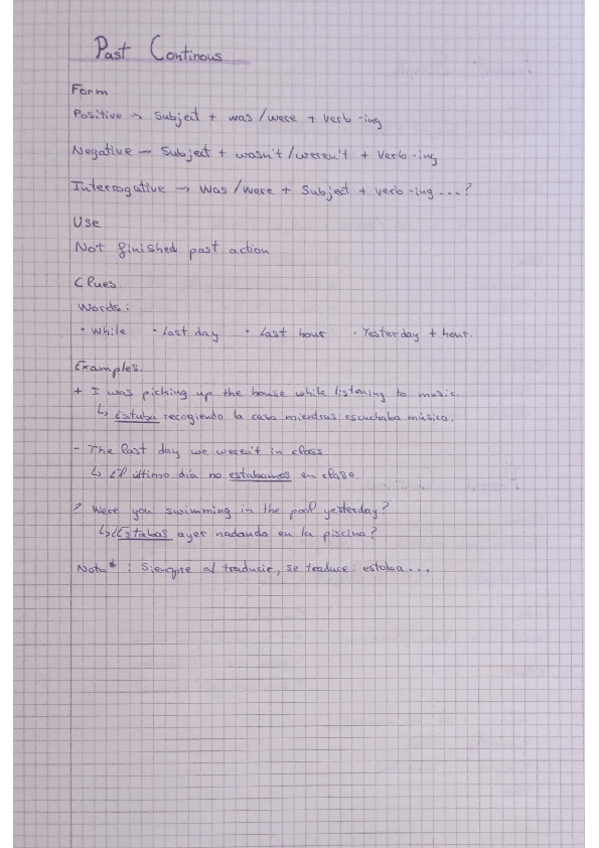 Past Continous
Form
Positive → Subject + was/were + verb -ing
Negative → Subject + wasn't/weren't + verb -ing
Interrogative → Was/were + Subject + verb -ing...?
Use
Not finished past action
Clues
Words:
• While • Last day • Last hour • Yesterday + hour.
Examples.
+ I was picking up the house while listening to music.
↳ Estaba recogiendo la casa mientras escuchaba música.
- The last day we weren't in class
↳ El último día no estabamos en clase.
? Were you swimming in the pool yesterday?
↳ ¿Estabas ayer nadando en la piscina?
Nota* : Siempre al traducir, se traduce: estaba...